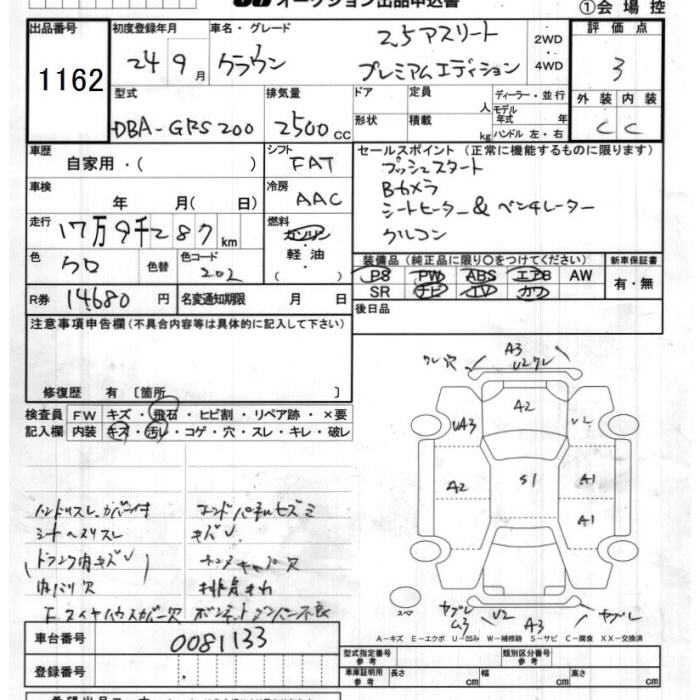 オークション出品申込書
①会場控
出品番号
1162
初度登録年月
24 9 月
車名・グレード
クラウン
2.5 アスリート
プレミアムエディション
2WD
・
4WD
評価点
3
型式
DBA-GRS200
排気量
2500 cc
ドア
形状
定員 人
積載 kg
ディーラー・並行
モデル年式 年
ハンドル 左・右
外装 内装
C C
車歴
自家用・( )
シフト
FAT
車検
年 月( 日)
冷房
AAC
走行
17万9千287 km
燃料
ガソリン
・
軽油
( )
色
クロ
色替
色コード
202
R券 14680 円
名変通知期限 月 日
セールスポイント(正常に機能するものに限ります)
プッシュスタート
Bカメラ
シートヒーター&ベンチレーター
クルコン
装備品(純正品に限り○をつけてください)
新車保証書
PS PW ABS エアB AW
SR ナビ TV カワ
有・無
後日品
注意事項申告欄(不具合内容等は具体的に記入して下さい)
修復歴 有〔箇所 〕
検査員 FW キズ・飛石・ヒビ割・リペア跡・×要
記入欄 内装 キズ・汚レ・コゲ・穴・スレ・キレ・破レ
ハンドルスレ カバー付
シートヘリスレ
(トランク内キズU)
内バリ穴
エンドパネルセズミ
キズU
キャップ穴
排気
ボンネットダンパー不良
ワレ 穴
A3
U2 ワレ
A2
UA3
U2
A2
S1
A1
A1
スペア
ヤブレ
U2
A3
ヤブレ
A-キズ E-エクボ U-凹み W-補修跡 S-サビ C-腐食 XX-交換済
車台番号
0081133
登録番号
型式指定番号
参考
類別区分番号
参考
車庫証明用
参考
長さ cm
幅 cm
高さ cm